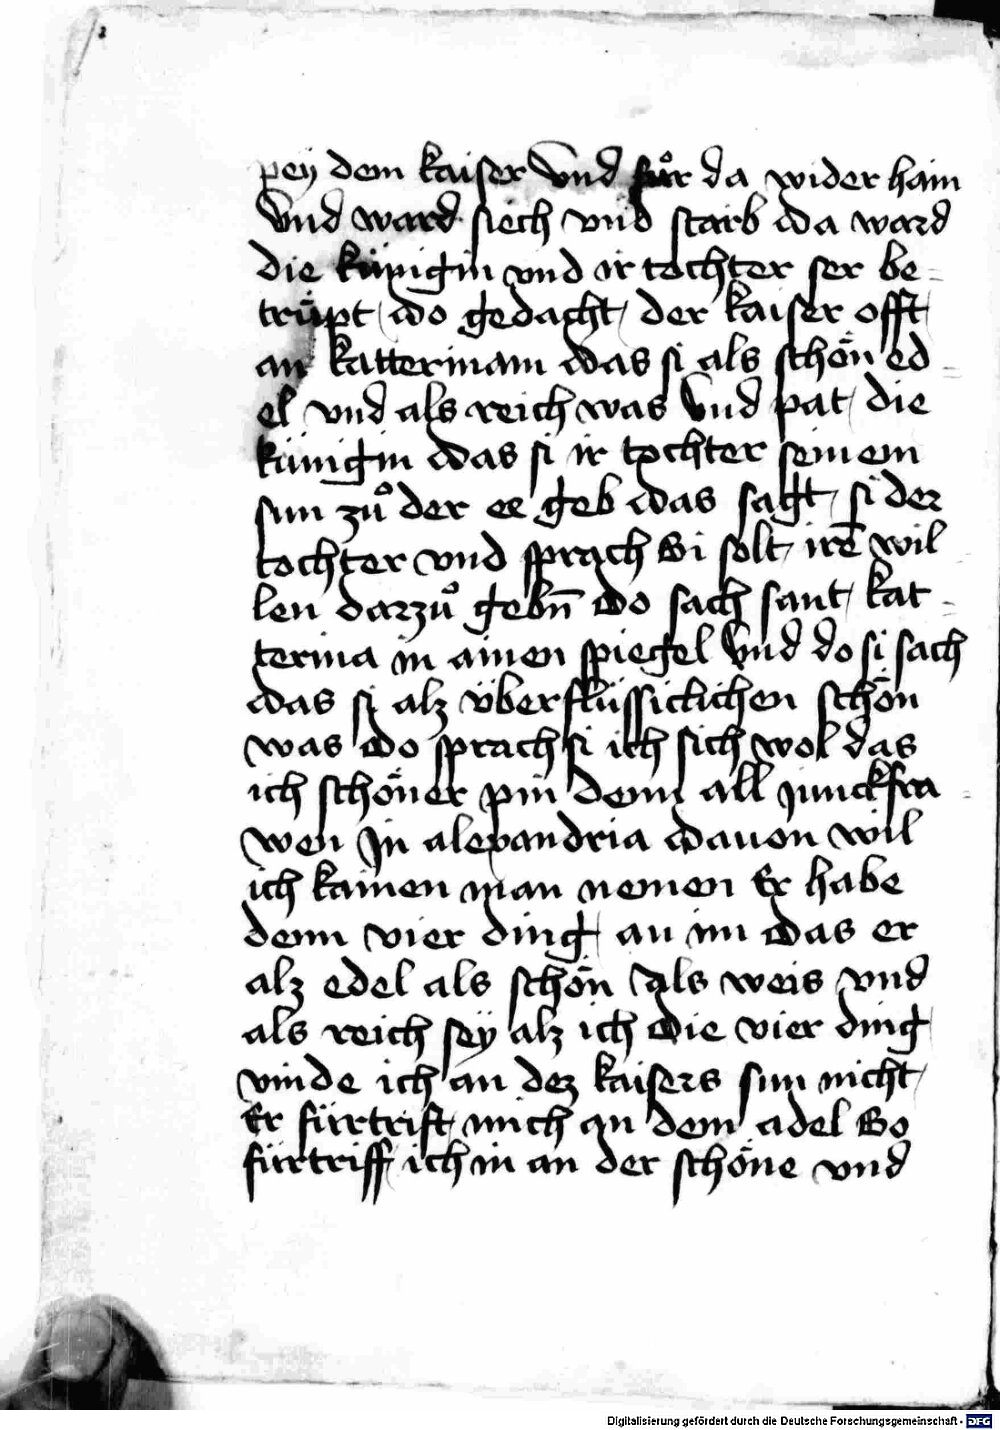 pey dem kaiser Vnd fuͦr da wider haim
Vnd ward siech vnd starb Da ward
die künigin vnd ir tochter ser be-
trüpt Do gedacht der kaiser offt
an katterinam Das si als schön ed-
el vnd als reich was Vnd pat die
künigin das si ir tochter seinem
sun zuͦ der ee geb Das sagt si der
tochter vnd sprach Si solt irē wil
len darzuͦ gebn̄ Do sach sant kat-
terina in ainen spiegel Vnd do si sach
das si alz überflüssiclichen schön
was Do sprach si ich sich wol das
ich schöner pin denn all junckfra-
wen In alexandria Dauon wil
ich kainen man nemen Er habe
denn vier ding an im Das er
alz edel als schön Als weis vnd
als reich sey alz ich Die vier ding
vinde ich an dez kaisers sun nicht
Er fürtrift mich an dem adel So
fürtriff ich in an der schöne vnd
Digitalisierung gefördert durch die Deutsche Forschungsgemeinschaft - DFG